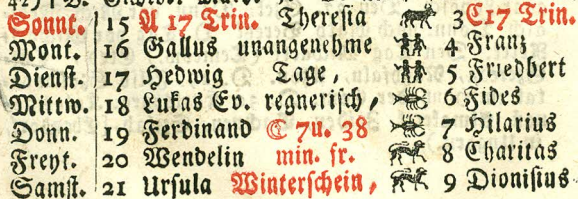 Sonnt. 15 A 17 Trin. Theresia 3 C17 Trin.
Mont. 16 Gallus unangenehme 4 Franz
Dienst. 17 Hedwig Tage, 5 Friedbert
Mittw. 18 Lukas Ev. regnerisch, 6 Fides
Donn. 19 Ferdinand ☾ 7u. 38 7 Hilarius
Freyt. 20 Wendelin min. fr. 8 Charitas
Samst. 21 Ursula Winterschein, 9 Dionisius